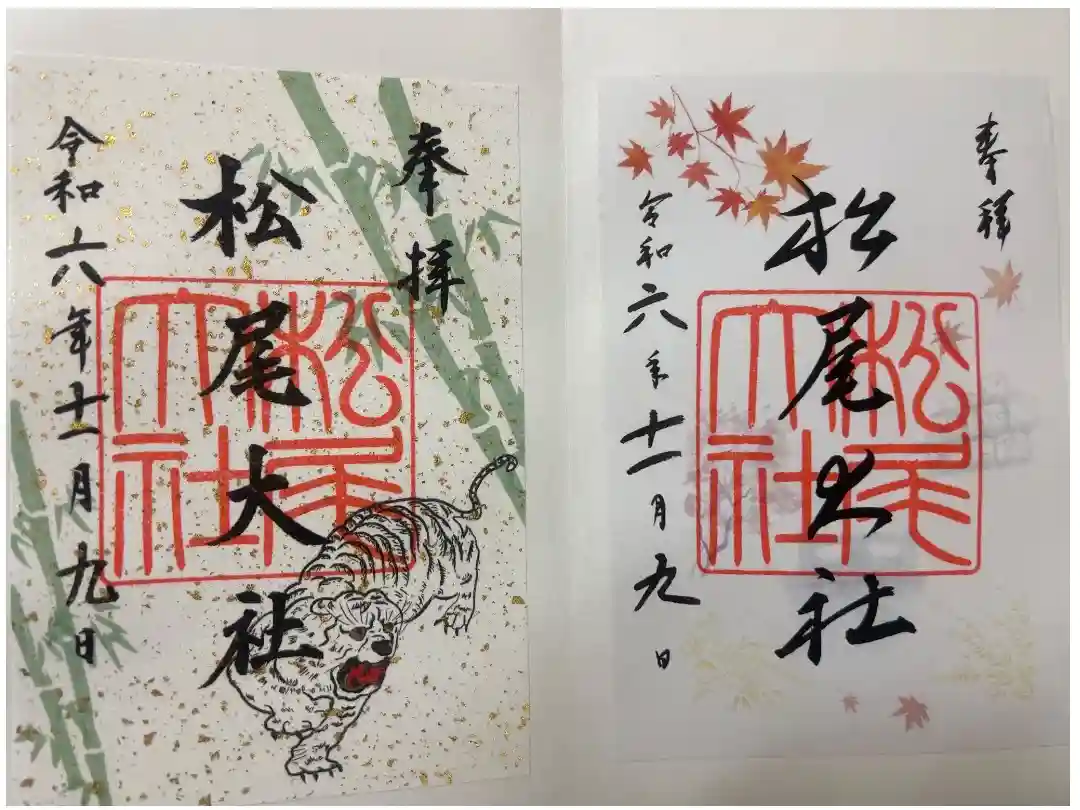 奉拝
松尾大社
松尾大社
令和六年十一月九日
奉拝
松尾大社
松尾大社
令和六年十一月九日